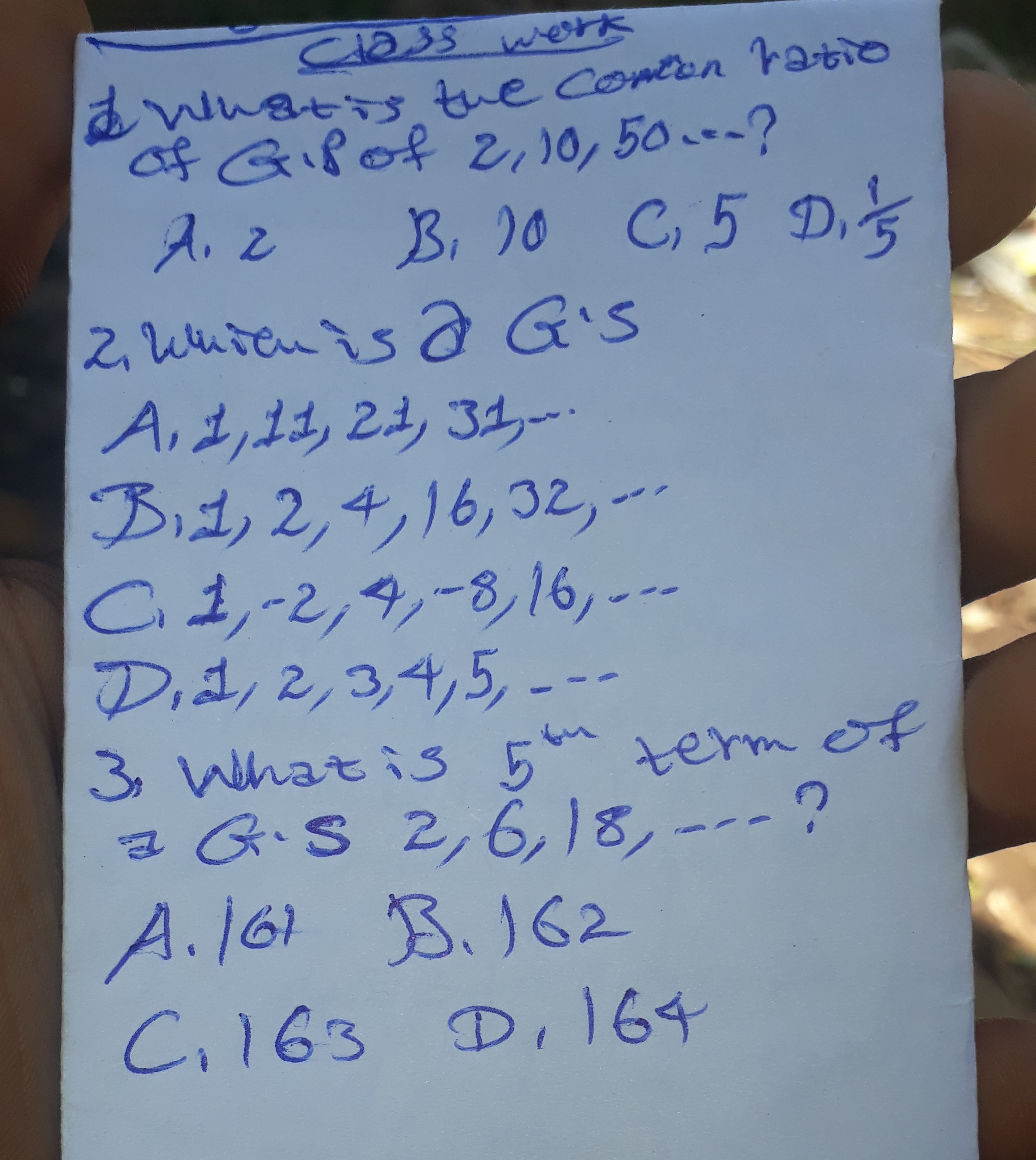 Class work
1 What is the comon ratio
of G.P of 2, 10, 50 ---?
A. 2 B. 10 C, 5 D. 1/5
2, Which is a G.S
A, 1, 11, 21, 31, ---
B, 1, 2, 4, 16, 32, ---
C, 1, -2, 4, -8, 16, ---
D, 1, 2, 3, 4, 5, ---
3, What is 5th term of
a G.S 2, 6, 18, --- ?
A. 161 B. 162
C, 163 D, 164